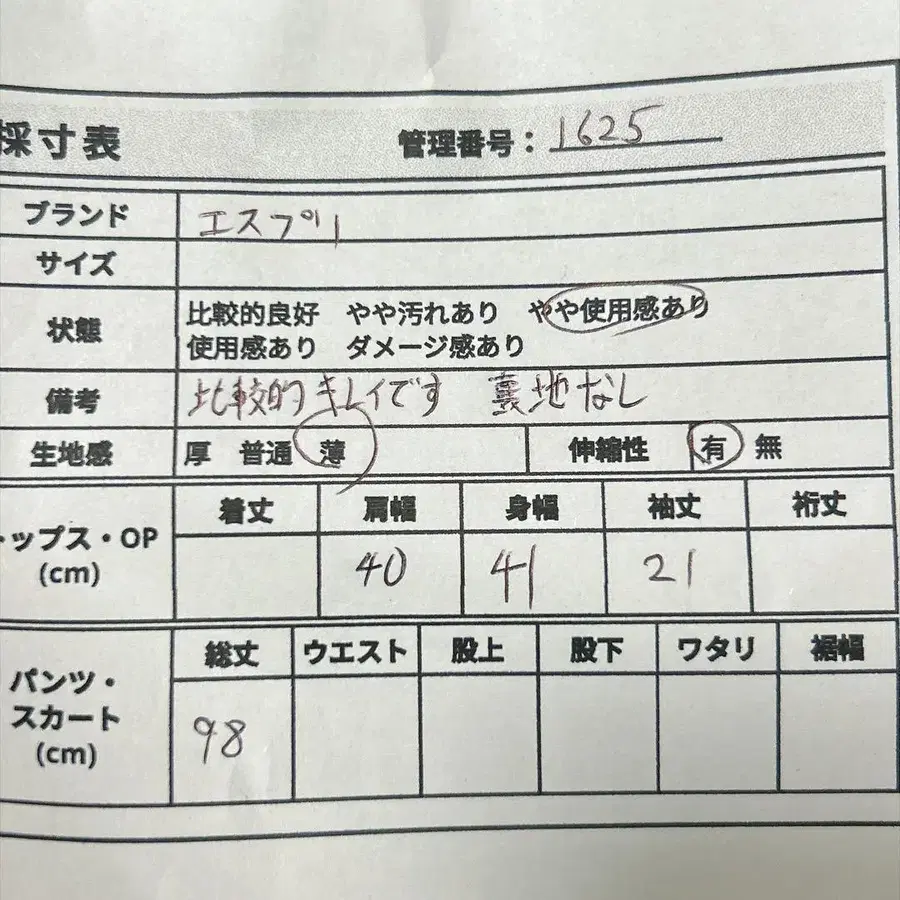 採寸表 管理番号：1625
ブランド エスプリ
サイズ
状態 比較的良好 やや汚れあり やや使用感あり
使用感あり ダメージ感あり
備考 比較的キレイです 裏地なし
生地感 厚 普通 薄 伸縮性 有 無
着丈 肩幅 身幅 袖丈 裄丈
トップス・OP
(cm)
40 41 21
総丈 ウエスト 股上 股下 ワタリ 裾幅
パンツ・
スカート
(cm)
98